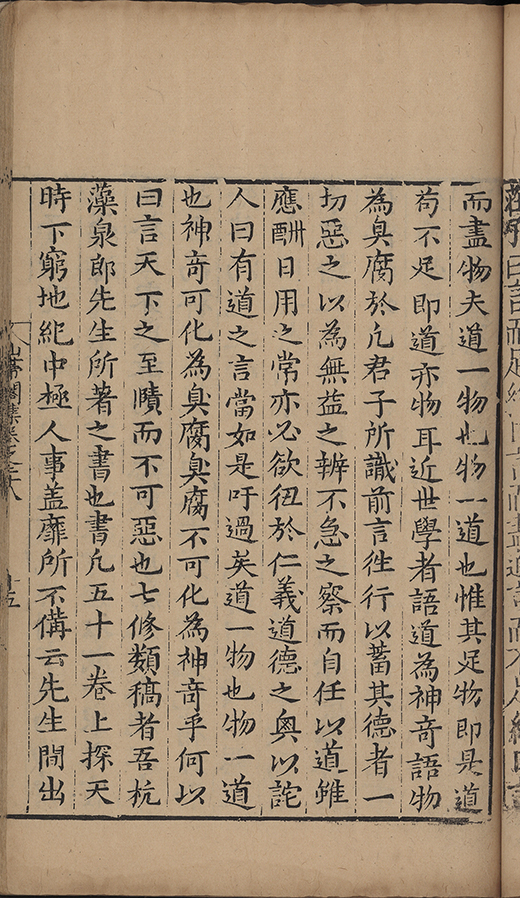 莊子曰言而足終日言而盡道言而不足終日言
而盡物夫道一物也物一道也惟其足物即是道
苟不足即道亦物耳近世學者語道為神奇語物
為臭腐於凢君子所識前言徃行以蓄其德者一
切惡之以為無益之辨不急之察而自任以道雖
應酬日用之常亦必欲於仁義道德之奥以詫
人曰有道之言當如是吁過矣道一物也物一道
也神奇可化為臭腐臭腐不可化為神奇乎何以
曰言天下之至賾而不可惡也七修類稿者吾杭
藻泉郎先生所著之書也書凢五十一卷上探天
時下窮地紀中極人事盖靡所不備云先生間出
山帶閣集卷 十五